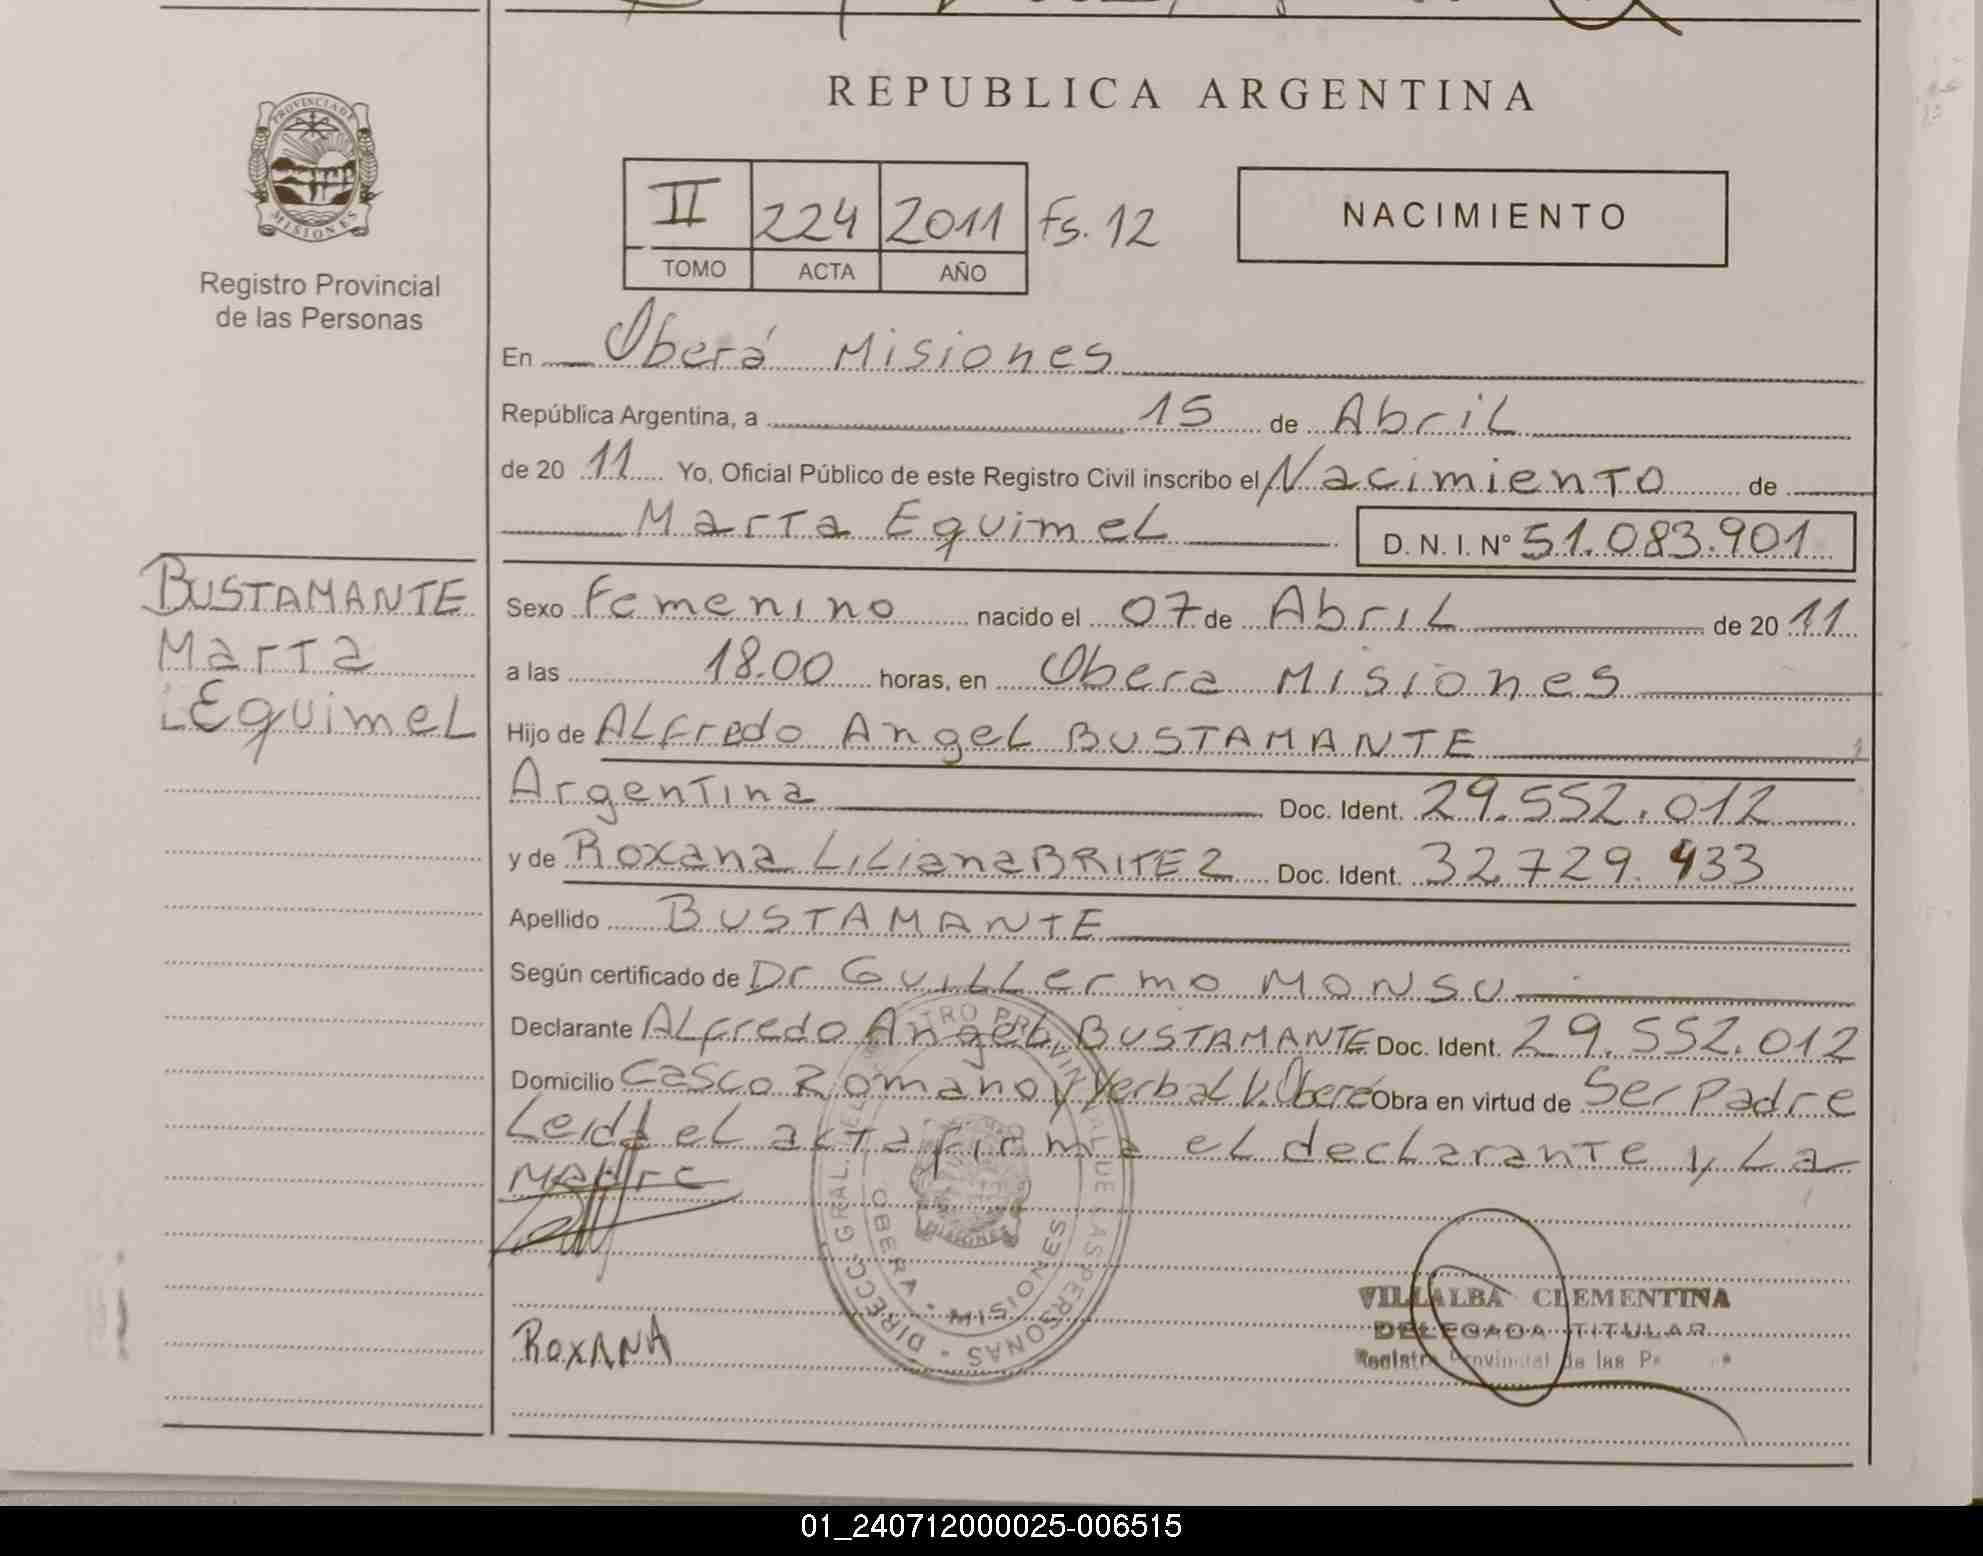 PROVINCIA DE
MISIONES
Registro Provincial
de las Personas
REPUBLICA ARGENTINA
II 224 2011 Fs. 12
TOMO ACTA AÑO
NACIMIENTO
En Oberá Misiones
República Argentina, a 15 de Abril
de 20 11 Yo, Oficial Público de este Registro Civil inscribo el Nacimiento de
Marta Equimel D. N. I. N° 51.083.901
BUSTAMANTE
Marta
Equimel
Sexo Femenino nacido el 07 de Abril de 20 11
a las 18.00 horas, en Obera Misiones
Hijo de Alfredo Angel BUSTAMANTE
Argentina Doc. Ident. 29.552.012
y de Roxana Liliana BRITEZ Doc. Ident. 32.729.433
Apellido BUSTAMANTE
Según certificado de Dr Guillermo MONSU
Declarante Alfredo Angel BUSTAMANTE Doc. Ident. 29.552.012
Domicilio Casco Romano y Yerbal V. Oberá Obra en virtud de Ser Padre
Leida el acta firma el declarante y La
Madre
OBERA - MISIONES
ROXANA
VILLALBA CLEMENTINA
DELEGADA TITULAR
Registro Provincial de las
01_240712000025-006515